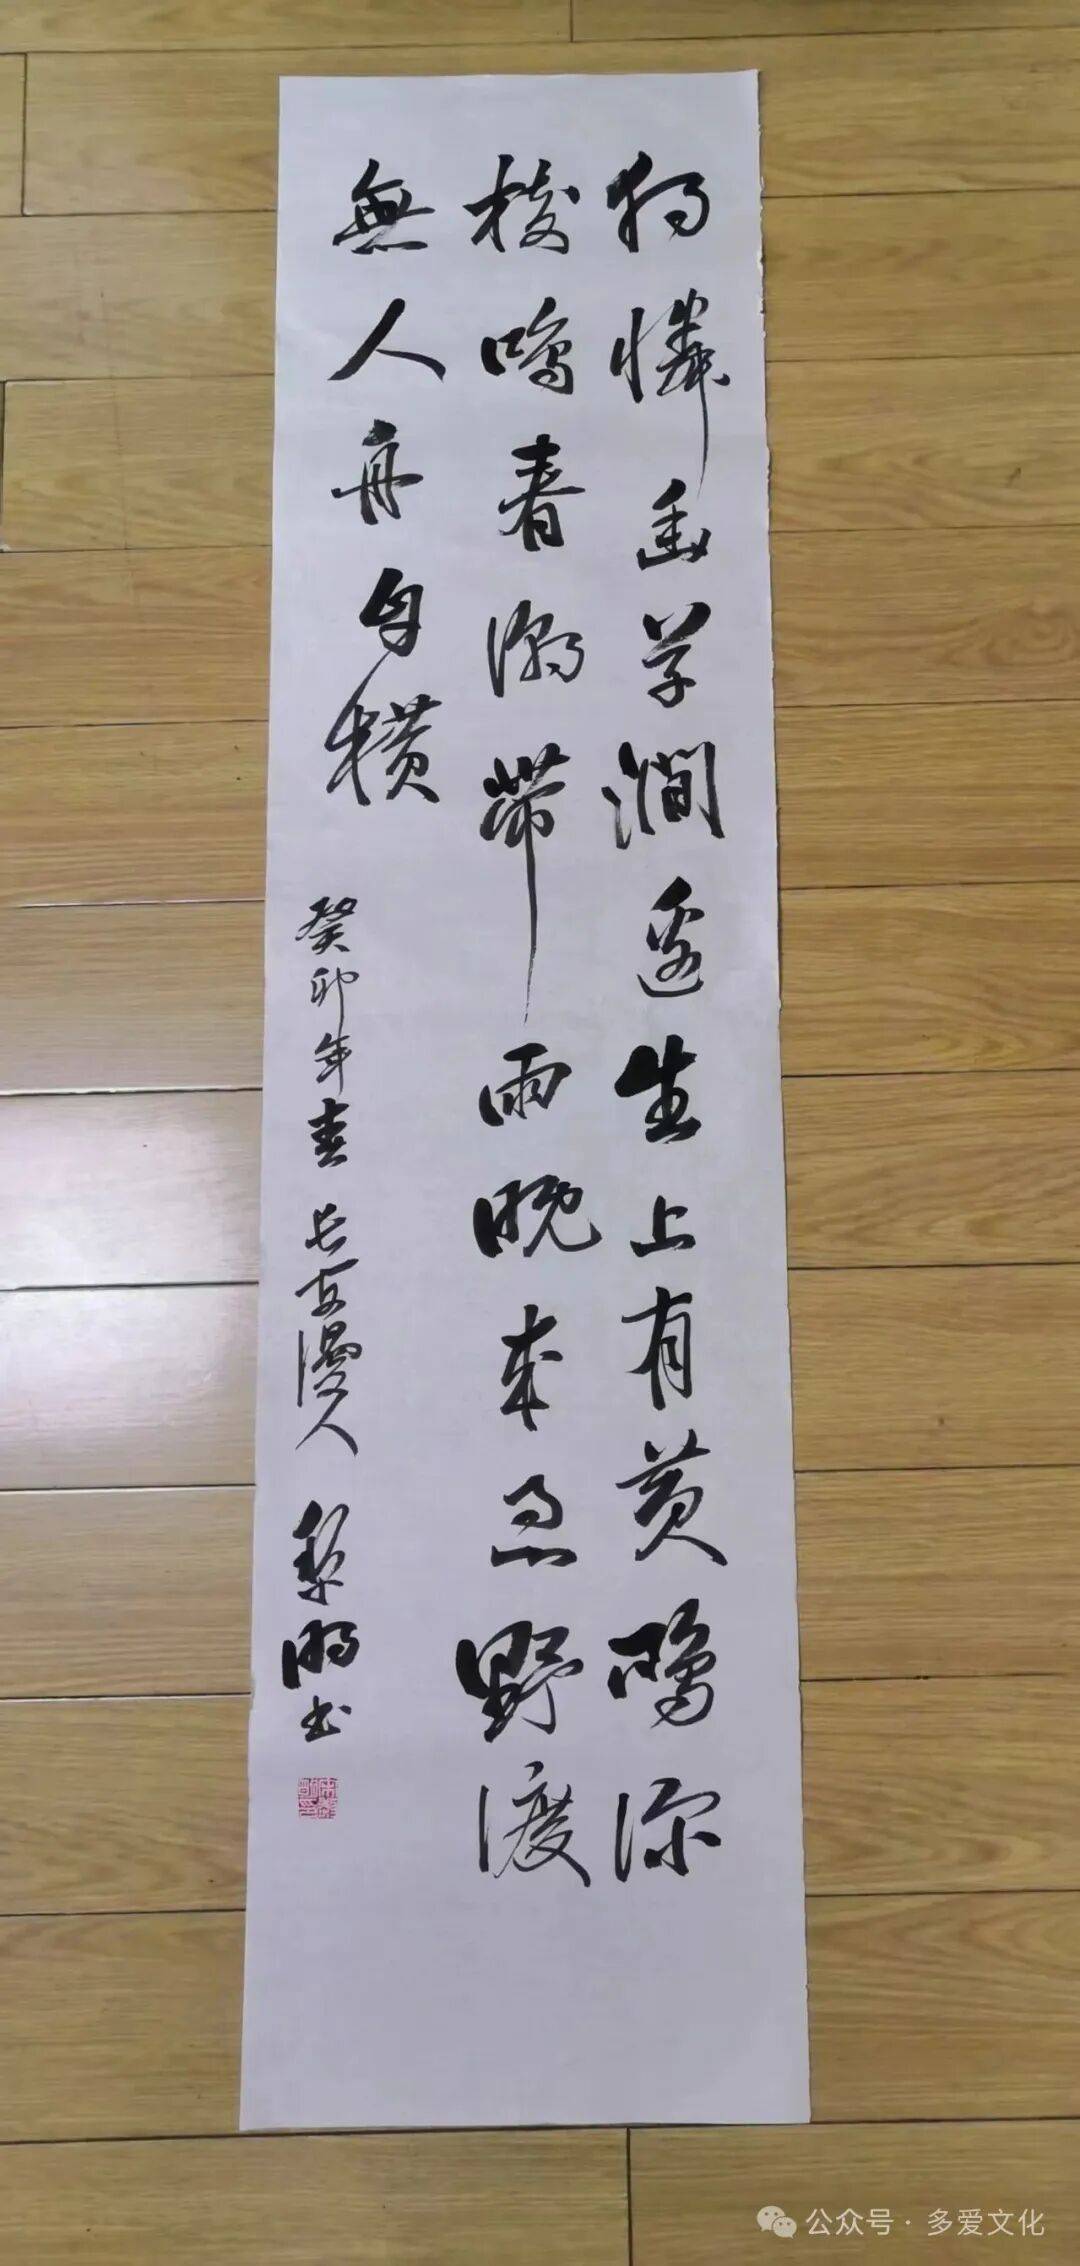 独憐幽草澗邊生上有黄鹂深
树鳴春潮帶雨晚来急野渡
無人舟自横
癸卯年春 长安漫人 黎明书
公众号·多爱文化